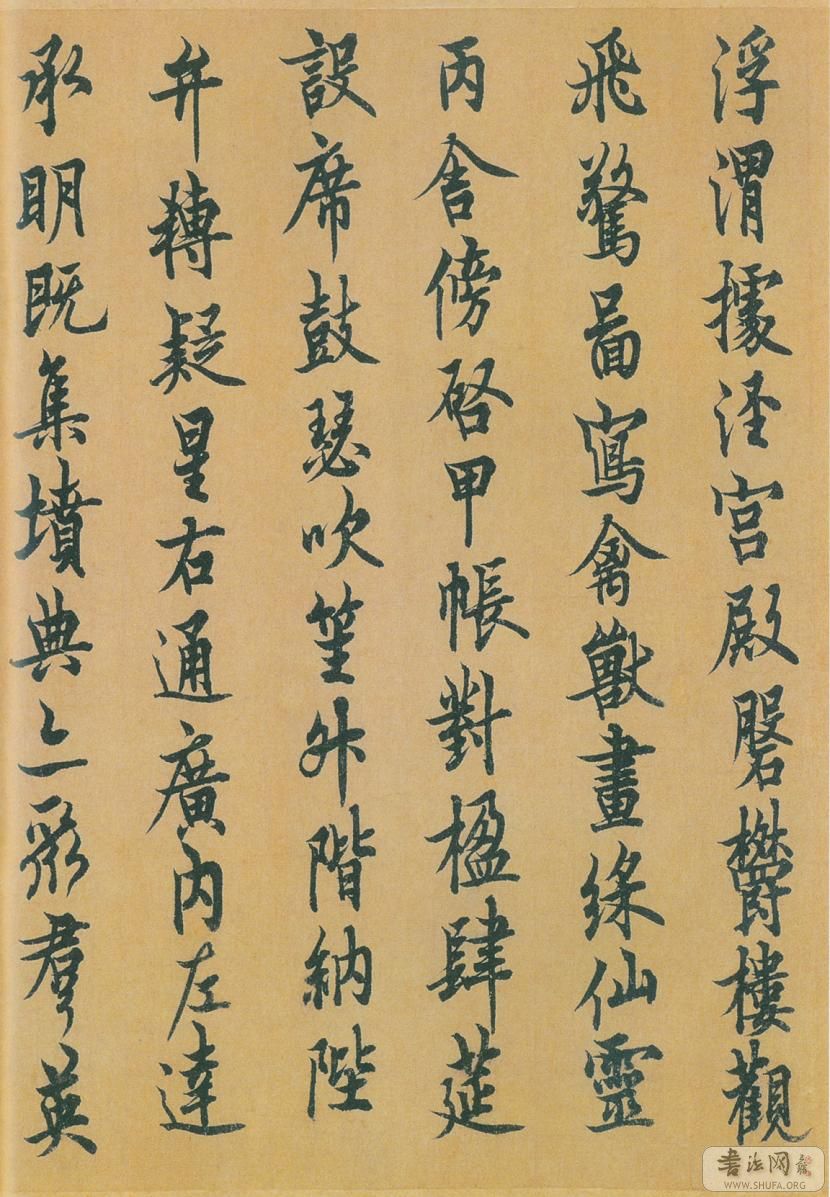 浮渭據涇宮殿磐鬱樓觀
飛驚啚寫禽獸畫綵仙靈
丙舍傍啓甲帳對楹肆筵
設席鼓瑟吹笙升階納陛
弁轉疑星右通廣內左達
承明既集墳典亦聚羣英
書法网
WWW.SHUFA.ORG